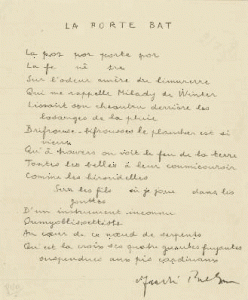 LA PORTE BAT
La por por porte por
La fe nê tre
Sur l'odeur amère du limurerre
Qui me rappelle Milady de Winter
Lissant son derrière les
losanges de la pluie
le plancher est si
vieux
Qu'à travers on voit le feu de la terre
Toutes les belles à leur
Comme les hirondelles
Sur les fils où je joue dans les
gouttes
D'un instrument inconnu
Au cœur de ce nœud de serpents
Qui est la croix des quatre fuyantes
suspendues aux pis cardinaux
André Breton